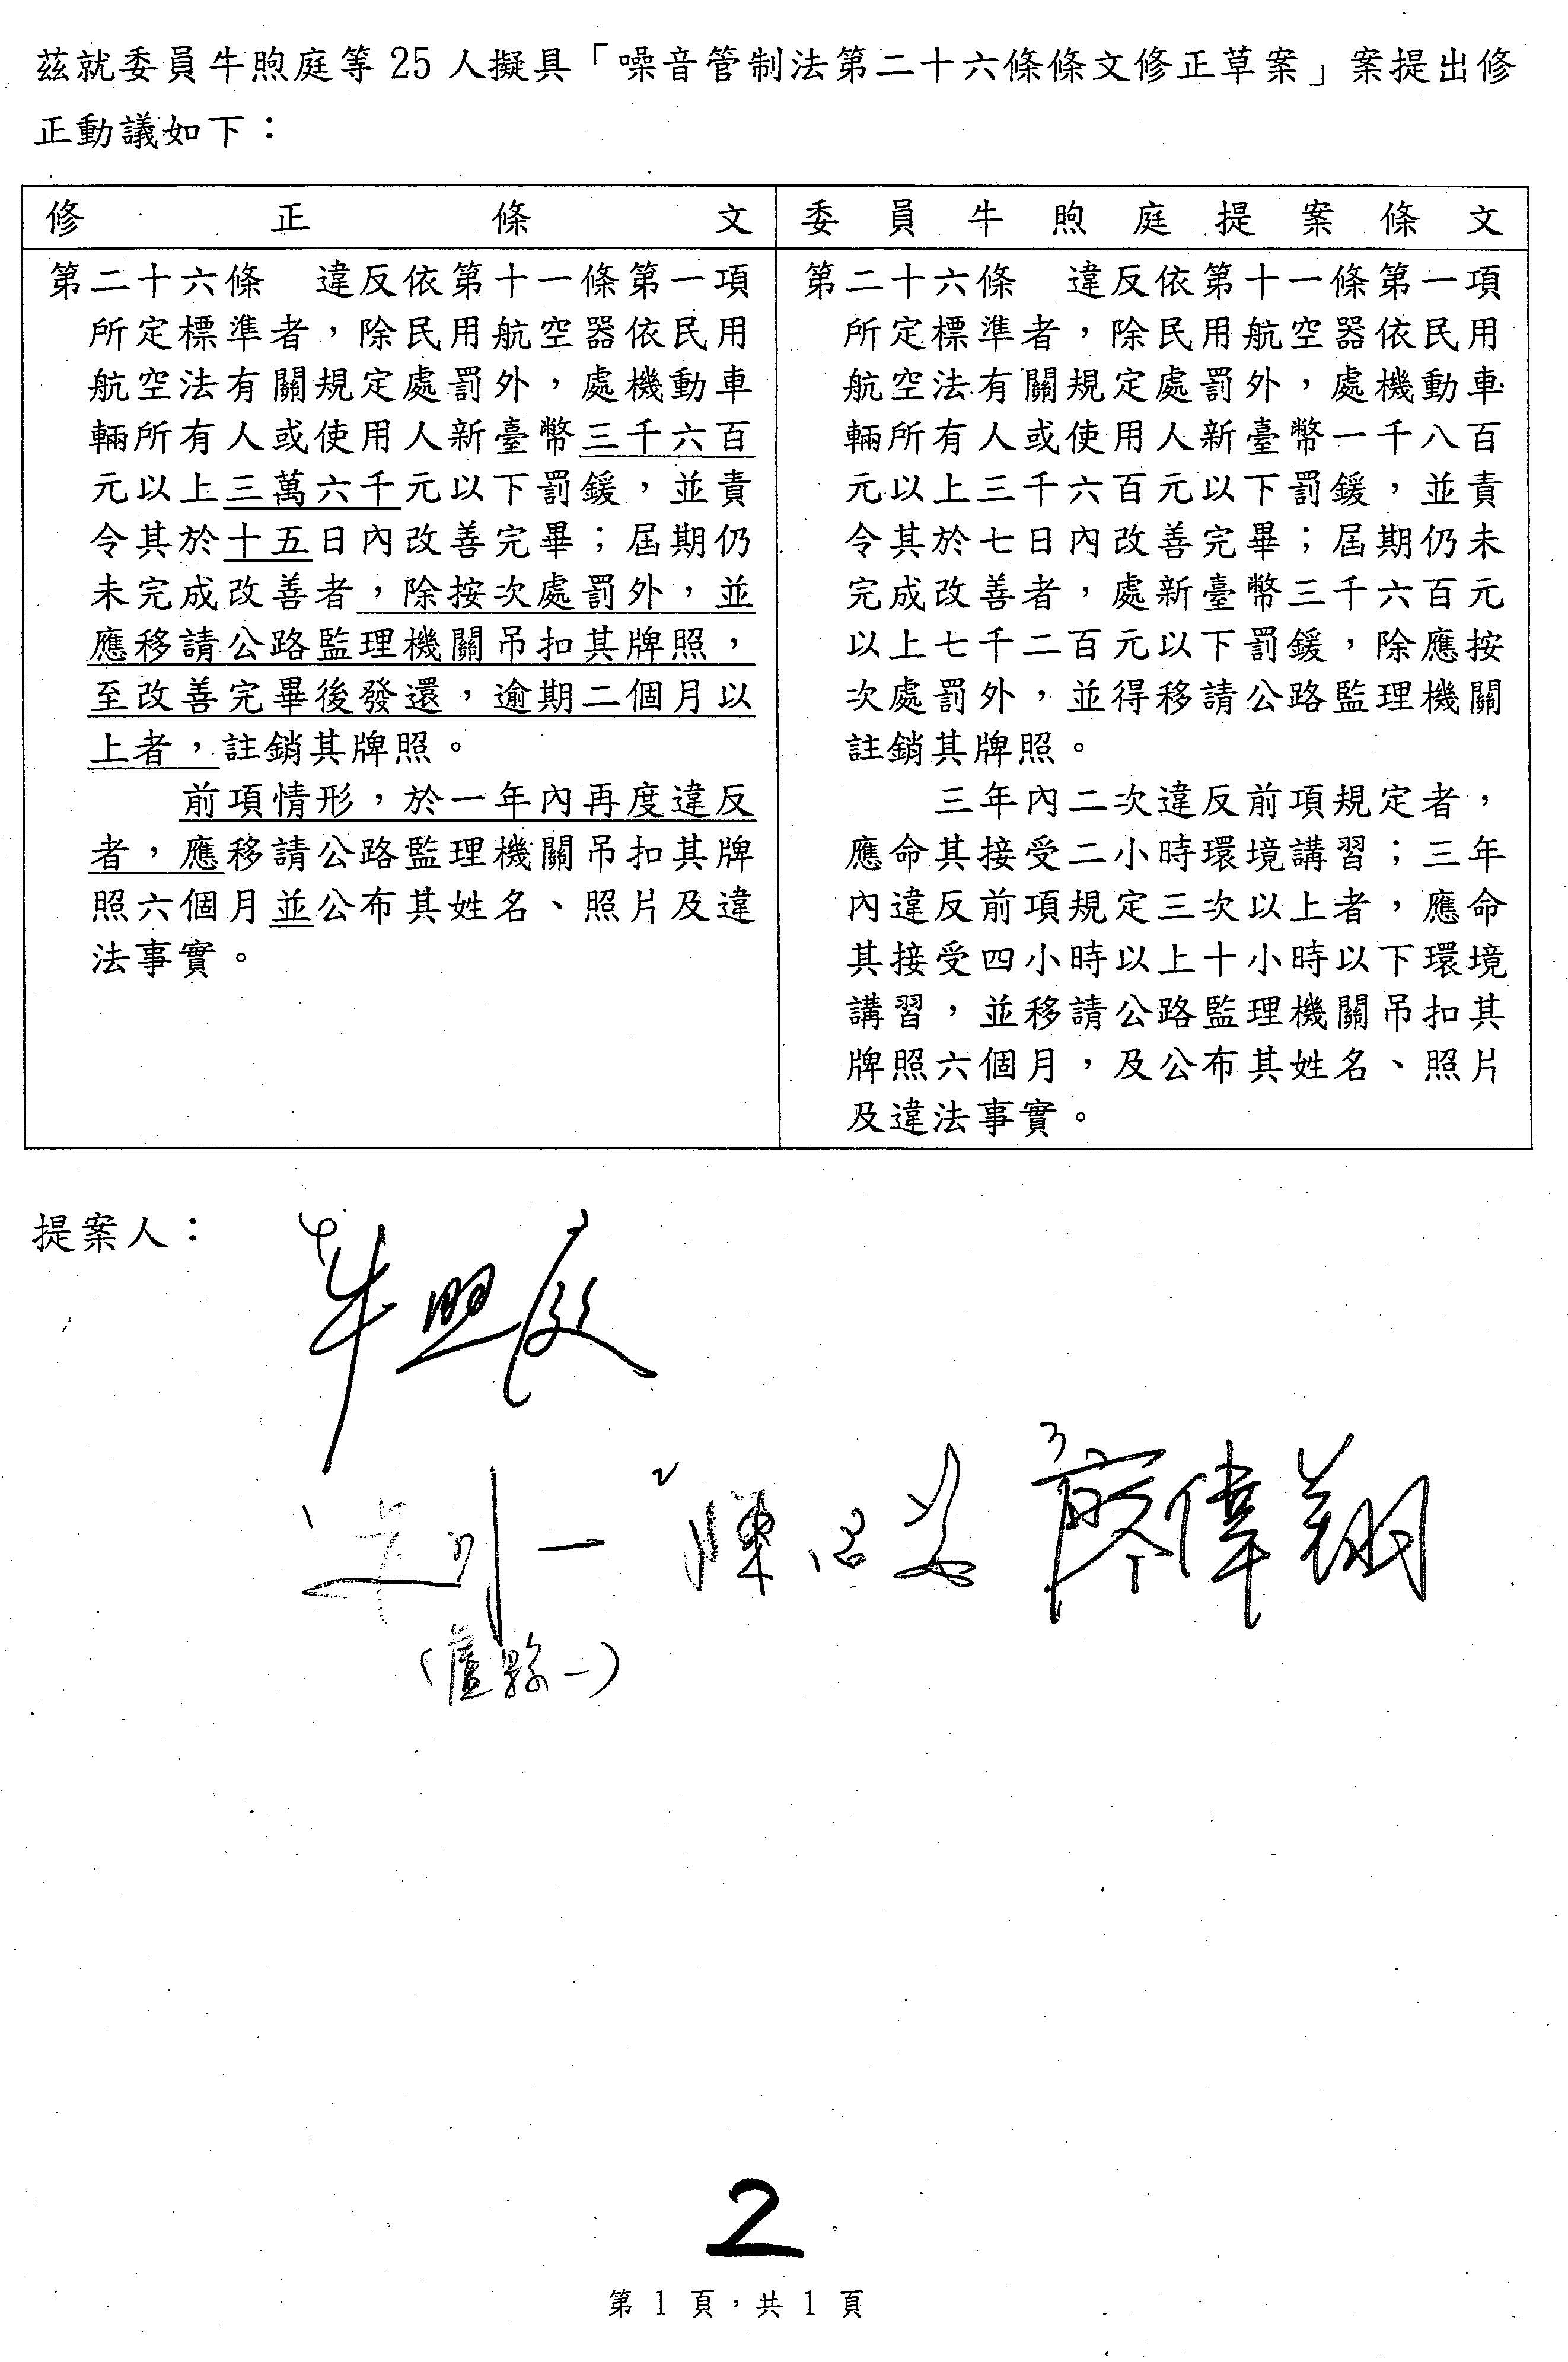 茲就委員牛煦庭等25人擬具「噪音管制法第二十六條條文修正草案」案提出修
正動議如下：
修正條文
第二十六條　違反依第十一條第一項
所定標準者，除民用航空器依民用
航空法有關規定處罰外，處機動車
輛所有人或使用人新臺幣三千六百
元以上三萬六千元以下罰鍰，並責
令其於十五日內改善完畢；屆期仍
未完成改善者，除按次處罰外，並
應移請公路監理機關吊扣其牌照，
至改善完畢後發還，逾期二個月以
上者，註銷其牌照。
前項情形，於一年內再度違反
者，應移請公路監理機關吊扣其牌
照六個月並公布其姓名、照片及違
法事實。
委員牛煦庭提案條文
第二十六條　違反依第十一條第一項
所定標準者，除民用航空器依民用
航空法有關規定處罰外，處機動車
輛所有人或使用人新臺幣一千八百
元以上三千六百元以下罰鍰，並責
令其於七日內改善完畢；屆期仍未
完成改善者，處新臺幣三千六百元
以上七千二百元以下罰鍰，除應按
次處罰外，並得移請公路監理機關
註銷其牌照。
三年內二次違反前項規定者，
應命其接受二小時環境講習；三年
內違反前項規定三次以上者，應命
其接受四小時以上十小時以下環境
講習，並移請公路監理機關吊扣其
牌照六個月，及公布其姓名、照片
及違法事實。
提案人：
牛煦庭
1
2
3 廖偉翔
（盧縣一）
2
第1頁，共1頁